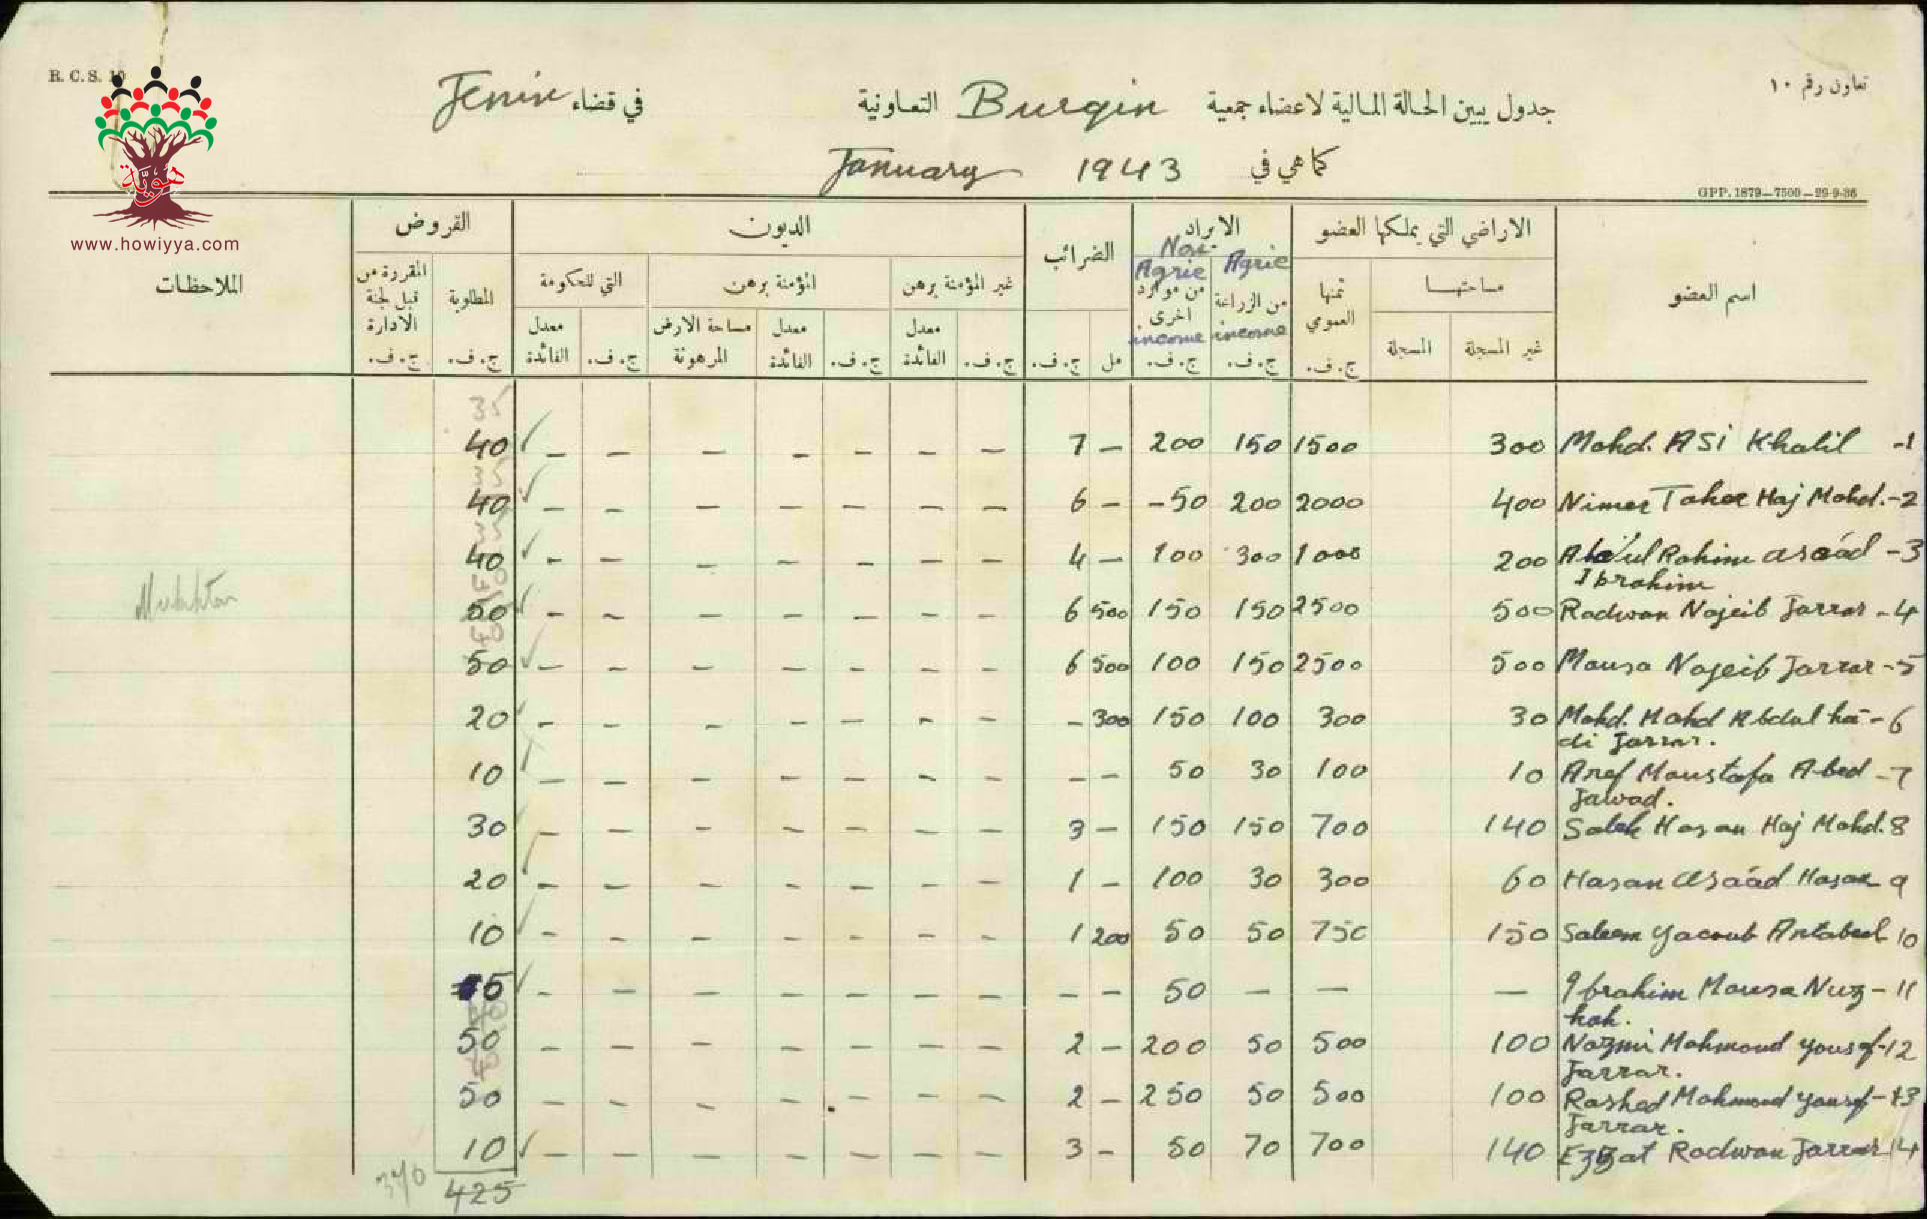 R. C. S. 10
تعاون رقم ١٠
جدول يبين الحالة المالية لاعضاء جمعية Burqin التعاونية في قضاء Jenin
كما هي في January 1943
GPP. 1879—7500—29-9-36
هوية
www.howiyya.com
اسم العضو
الاراضي التي يملكها العضو
الايراد
الضرائب
الديون
القروض
الملاحظات
مساحتها
ثمنها العمومي
Agric
Non-Agric
غير المؤمنة برهن
المؤمنة برهن
التي للحكومة
المطلوبة
المقررة من قبل لجنة الادارة
غير المسجلة
المسجلة
من الزراعة
income
من موارد اخرى
income
معدل الفائدة
معدل الفائدة
مساحة الارض المرهونة
معدل الفائدة
ج. ف.
ج. ف.
ج. ف.
مل
ج. ف.
ج. ف.
ج. ف.
ج. ف.
ج. ف.
ج. ف.
35
40 ✓ – – – – – – – 7 – 200 150 1500 300 Mohd. Asi Khalil -1
40 ✓ – – – – – – – 6 – -50 200 2000 400 Nimer Taher Haj Mohd. -2
40 ✓ – – – – – – – 4 – 100 300 1000 200 Abdul Rahim asaád -3
Ibrahim
Mukhtar 50 ✓ – – – – – – – 6 500 150 150 2500 500 Radwan Najeib Jarrar -4
50 ✓ – – – – – – – 6 500 100 150 2500 500 Mousa Najeib Jarrar -5
20 ✓ – – – – – – – – 300 150 100 300 30 Mohd. Mohd Abdul ha- -6
di Jarrar.
10 – – – – – – – – – 50 30 100 10 Aref Moustafa Abed -7
Jawad.
30 – – – – – – – 3 – 150 150 700 140 Saleh Hasan Haj Mohd. 8
20 – – – – – – – 1 – 100 30 300 60 Hasan asaád Hasan 9
10 ✓ – – – – – – – 1 200 50 50 750 150 Saleem Yacoub 10
5 ✓ – – – – – – – – – 50 – – – Ibrahim Mousa Nuz- 11
hah.
50 – – – – – – – 2 – 200 50 500 100 Nazmi Mahmoud Yousef -12
Jarrar.
50 – – – – – – – 2 – 250 50 500 100 Rashed Mahmoud Yousef -13
Jarrar.
10 ✓ – – – – – – – 3 – 50 70 700 140 Ezzat Radwan Jarrar 14
370
425